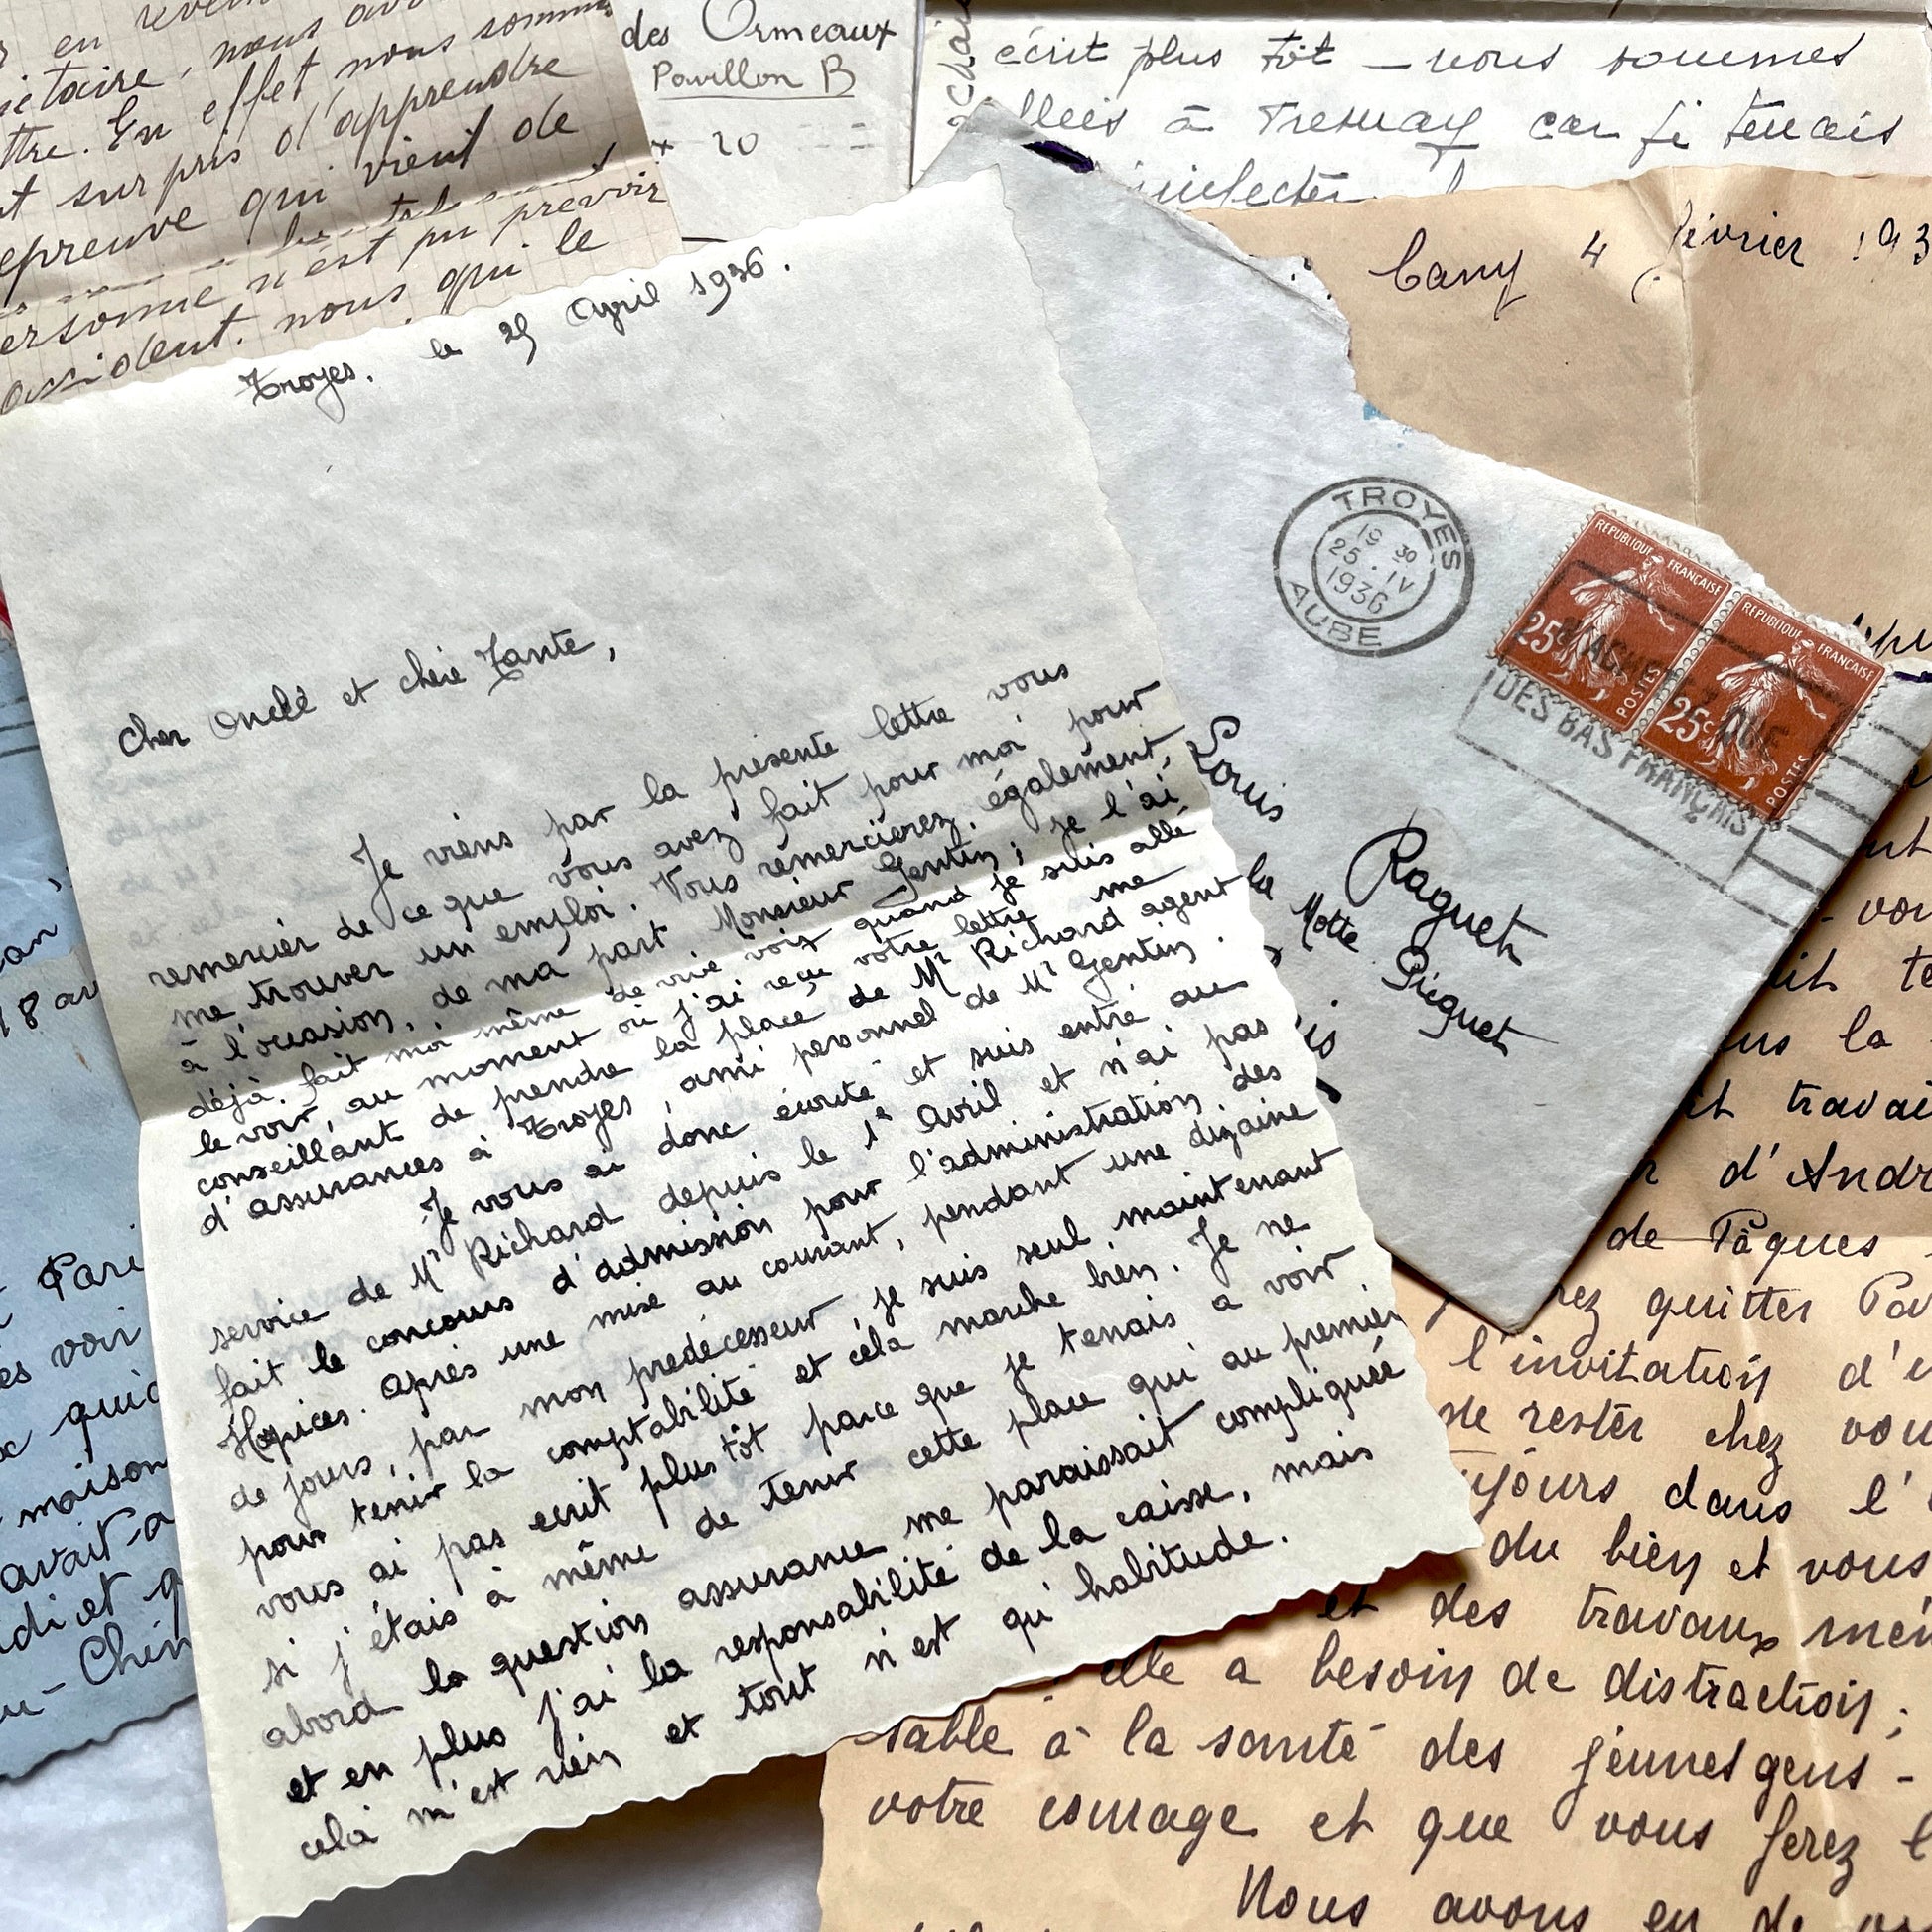 en
iétaire, nous
ttre. En effet nous sommes
t surpris d'apprendre
epreuve qui vient de
ersonne n'est pu prevoir
assident. nous qui le
des Ormeaux
Pavillon B
20
écrit plus tôt – nous sommes
allées à Tresnay car je tenais
Cany 4 février 193
Troyes, le 25 Avril 1936.
Cher Oncle et chère Tante,
Je viens par la présente lettre vous
remercier de ce que vous avez fait pour moi pour
me trouver un emploi. Vous remercierez, également,
à l'occasion, de ma part Monsieur Gentin ; je l'ai
déjà fait moi même de vive voix quand je suis allé
le voir, au moment où j'ai reçu votre lettre me
conseillant de prendre la place de Mr Richard agent
d'assurances à Troyes, ami personnel de Mr Gentin.
Je vous ai donc écouté et suis entré au
service de Mr Richard depuis le 1e Avril et n'ai pas
fait le concours d'admission pour l'administration des
Hospices. Après une mise au courant, pendant une dizaine
de jours, par mon prédécesseur, je suis seul maintenant
pour tenir la comptabilité et cela marche bien. Je ne
vous ai pas ecrit plus tôt parce que je tenais a voir
si j'étais à même de tenir cette place qui au premier
abord la question assurance me paraissait compliquée
et en plus j'ai la responsabilité de la caisse, mais
celà m'est rien et tout n'est qu'habitude.
TROYES
19 30
25 . IV
1936
AUBE
REPUBLIQUE FRANÇAISE
25c
POSTES
REPUBLIQUE FRANÇAISE
25c
POSTES
DES BAS FRANÇAIS
Louis Raguet
la Motte Picquet
is
18 av
Pari
voir
quid
maison
avait
di et q
Chin
vou
la
travai
d'André
de Pâques
rez quitter Pa
l'invitation d'
me rester chez vou
ujours dans l'
du bien et vous
et des travaux mén
elle a besoin de distraction ;
sable à la santé des jeunes gens -
votre courage et que vous ferez l
Nous avons eu de